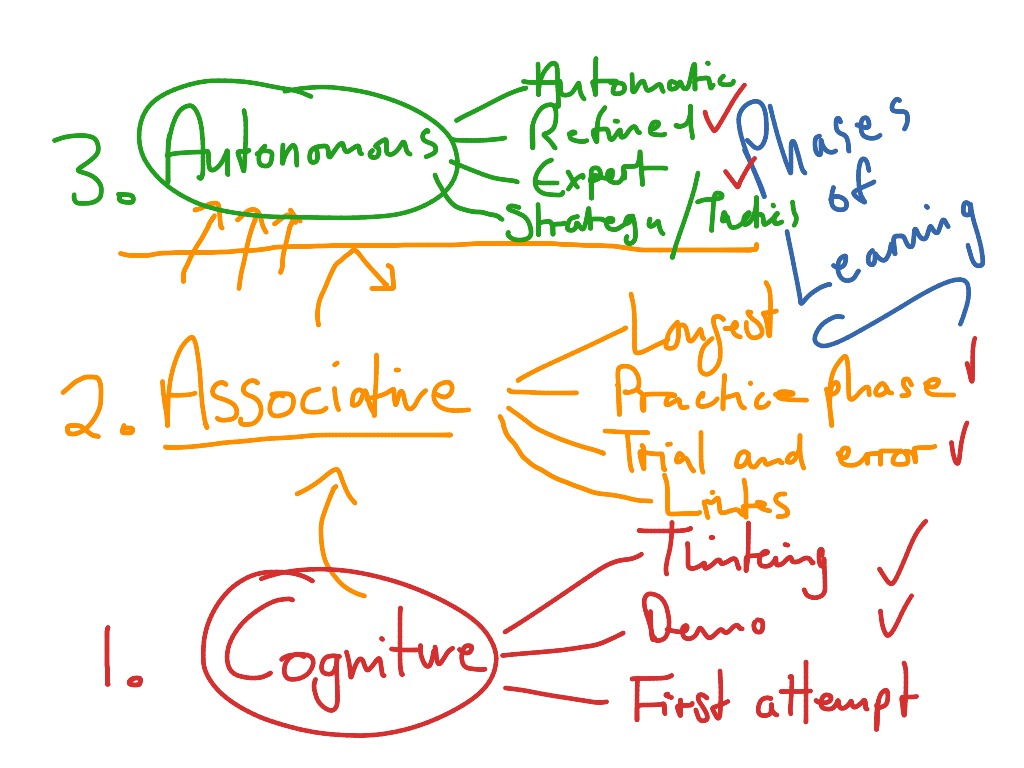 Phases
of
Learning
3. Autonomous
Automatic
Refined
Expert
Strategy / Tactics
2. Associative
Longest
Practice phase
Trial and error
Links
1. Cognitive
Thinking
Demo
First attempt